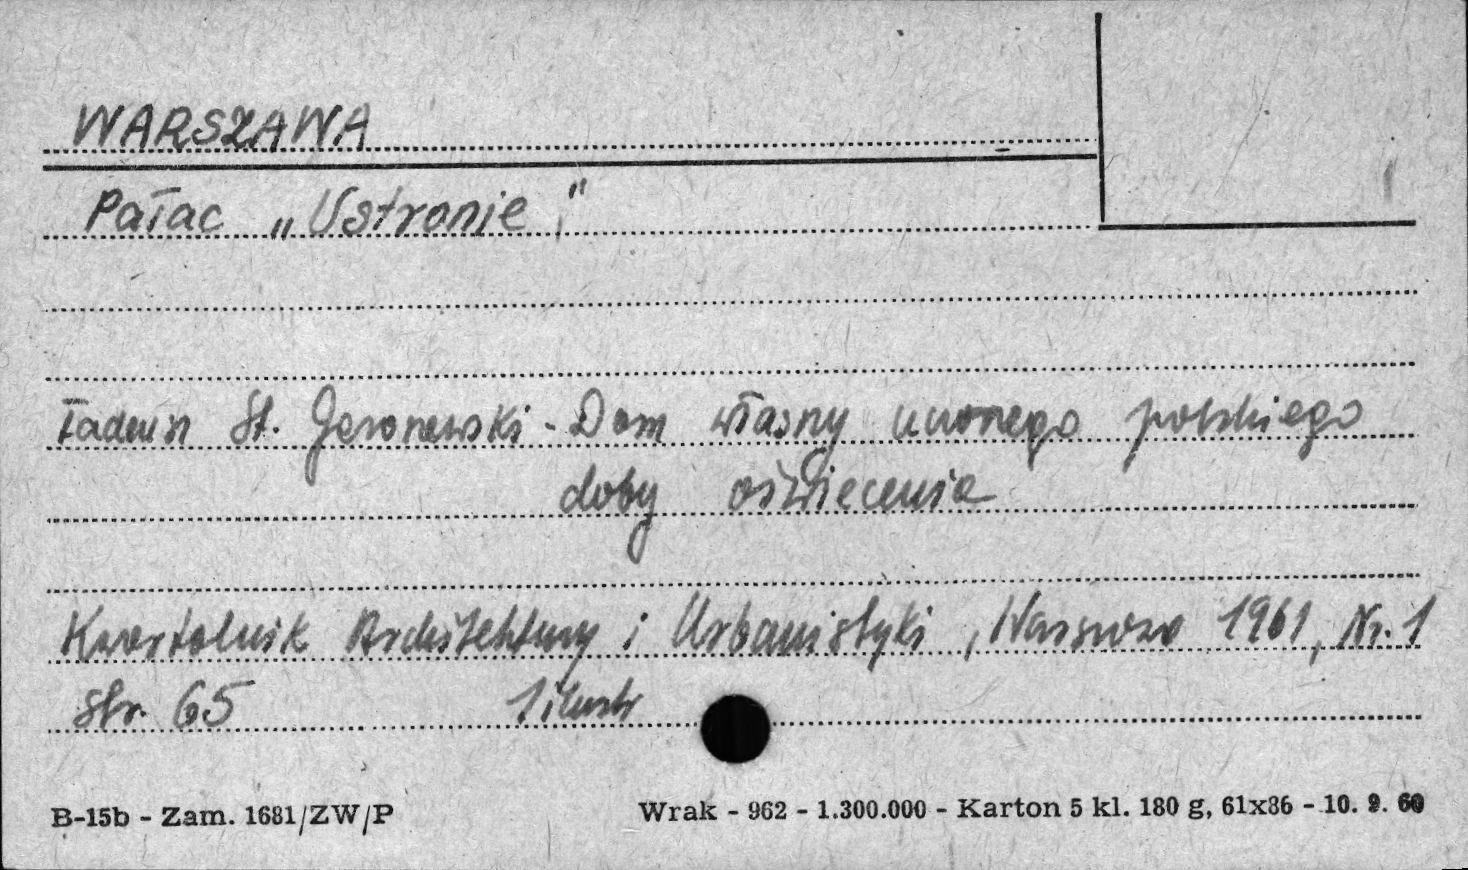 WARSZAWA
Pałac „Ustronie”
Tadeusz St. Jaroszewski - Dom własny uczonego polskiego
doby oświecenia
Kwartalnik Architektury i Urbanistyki, Warszawa 1961, Nr. 1
str. 65 1 ilustr
B-15b - Zam. 1681/ZW/P Wrak - 962 - 1.300.000 - Karton 5 kl. 180 g, 61x86 - 10. 9. 60